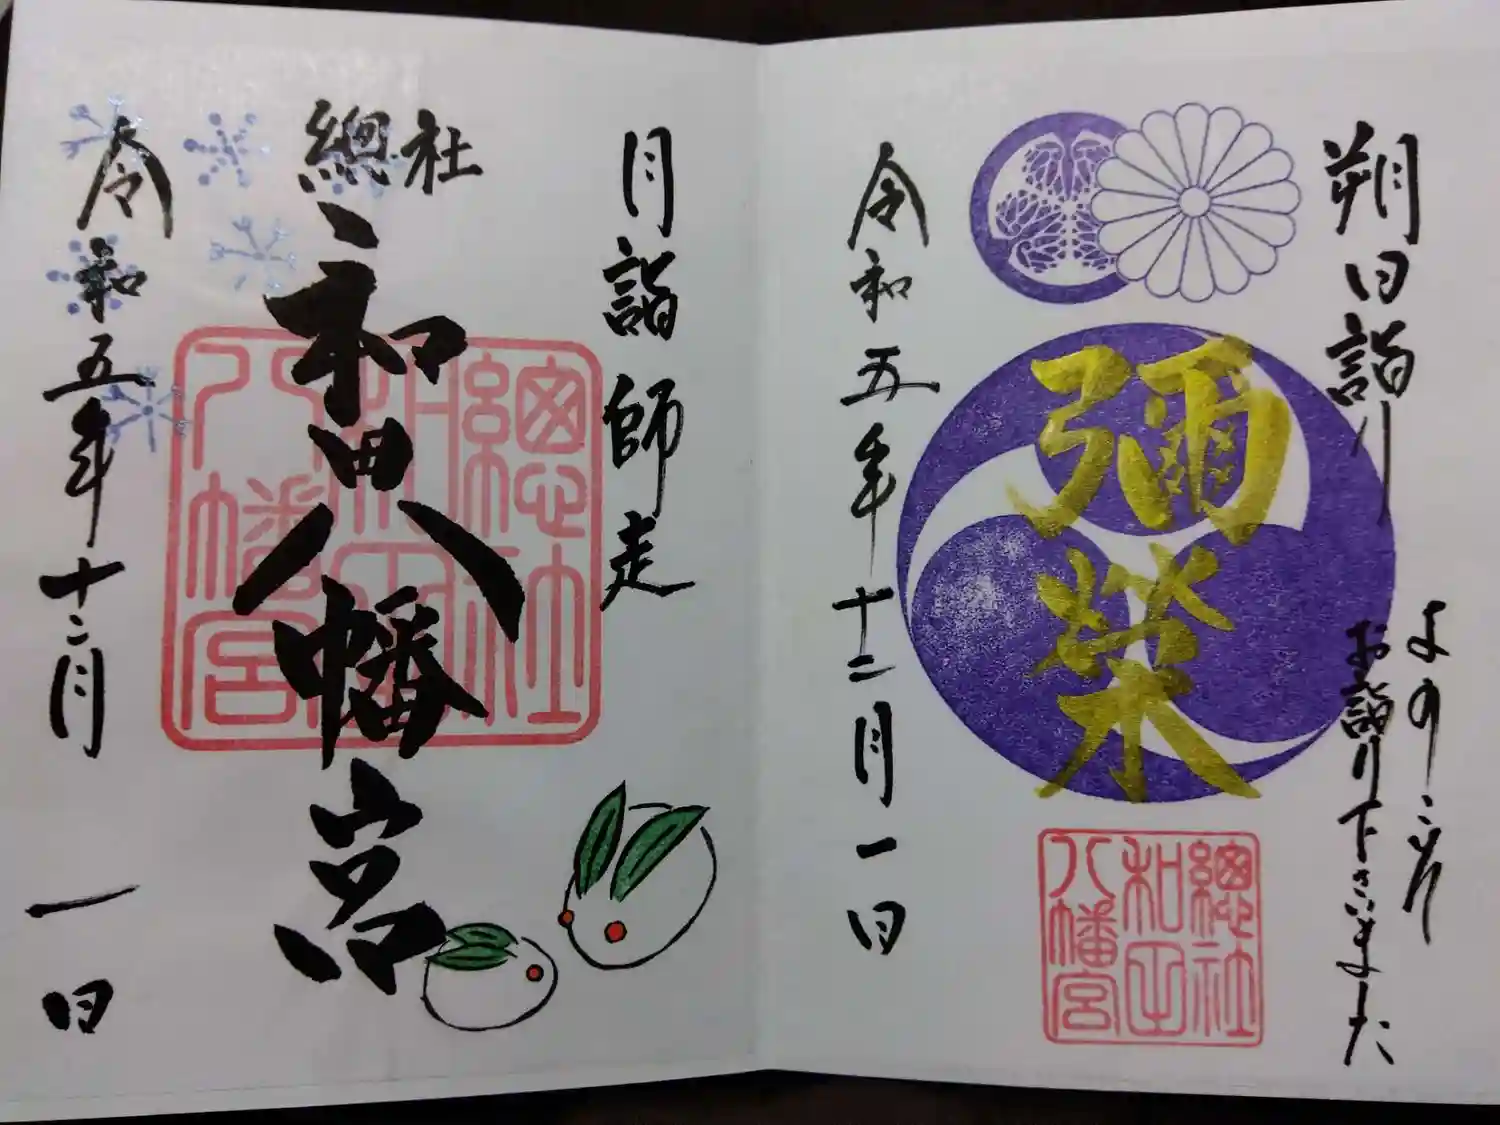 朔日詣り
よくのこゝろ
お詣り下さいました
彌榮
總社
和田
八幡宮
令和五年十二月一日
月詣 師走
總社
和田八幡宮
總社
和田
八幡宮
令和五年十二月 一日